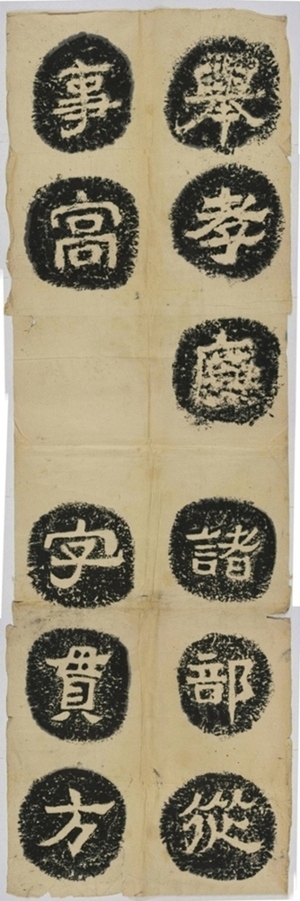 舉孝廉諸部從
事高字貫方